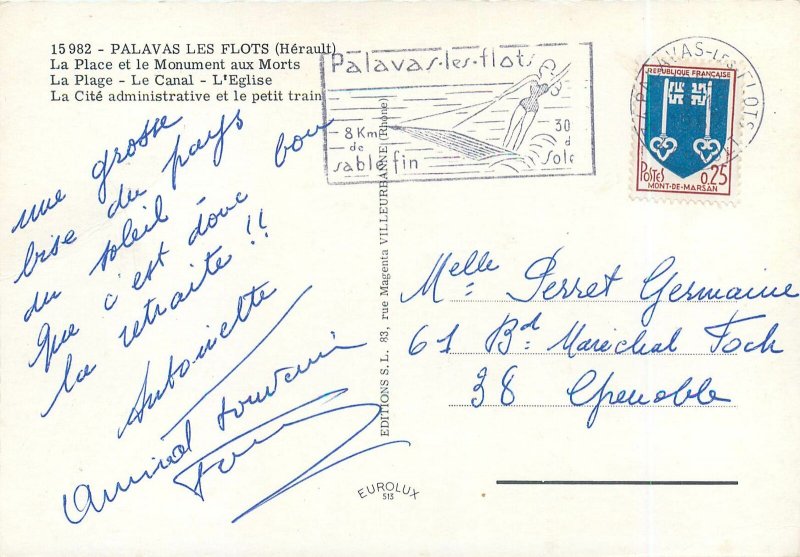 15 982 - PALAVAS LES FLOTS (Hérault)
La Place et le Monument aux Morts
La Plage - Le Canal - L'Eglise
La Cité administrative et le petit train
Palavas-les-flots
8 Km
de
sable fin
30
d
Sole
PALAVAS-LES-FLOTS
REPUBLIQUE FRANÇAISE
POSTES 0,25
MONT-DE-MARSAN
une grosse
bise du pays
du soleil
Que c'est donc bon
la retraite !!
Antoinette
Amical souvenir
EDITIONS S.L. 83, rue Magenta VILLEURBANNE (Rhône)
Melle Perret Germaine
61 Bd Maréchal Foch
38 Grenoble
EUROLUX
513